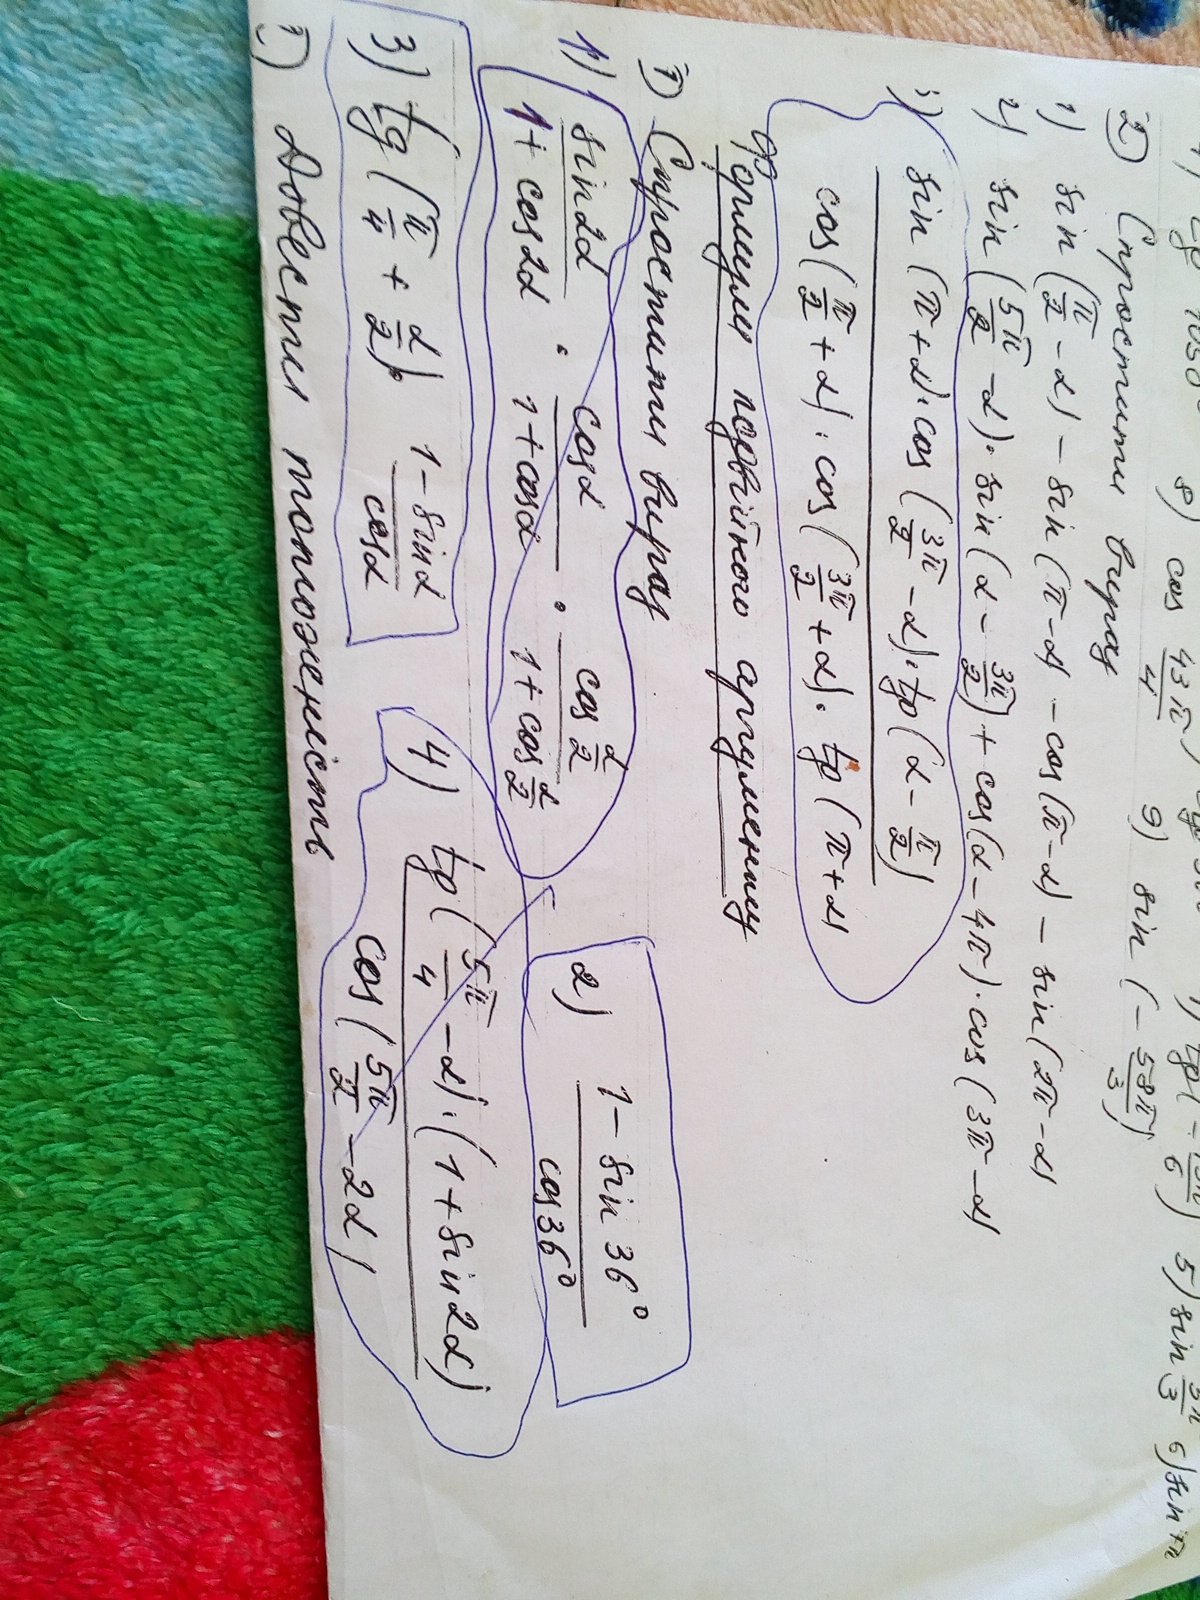 8) cos 43π/4
9) sin (-58π/3)
5) sin
2) Спростити вираз
1) sin(π/2 - α) - sin(π - α) - cos(π - α) - sin(2π - α)
2) sin(5π/2 - α) · sin(α - 3π/2) + cos(α - 4π) · cos(3π - α)
3) sin(π + α) · cos(3π/2 - α) · tg(α - π/2)
cos(π/2 + α) · cos(3π/2 + α) · tg(π + α)
Формули подвійного аргументу
1) Спростити вираз
1) sin2α/1 + cos2α · cosα/1 + cosα · cos α/2/1 + cos α/2
2) 1 - sin 36°/cos 36°
3) tg(π/4 + α/2) · 1 - sinα/cosα
4) tg(5π/4 - α) · (1 + sin2α)
cos(5π/2 - 2α)
1) Довести тотожність